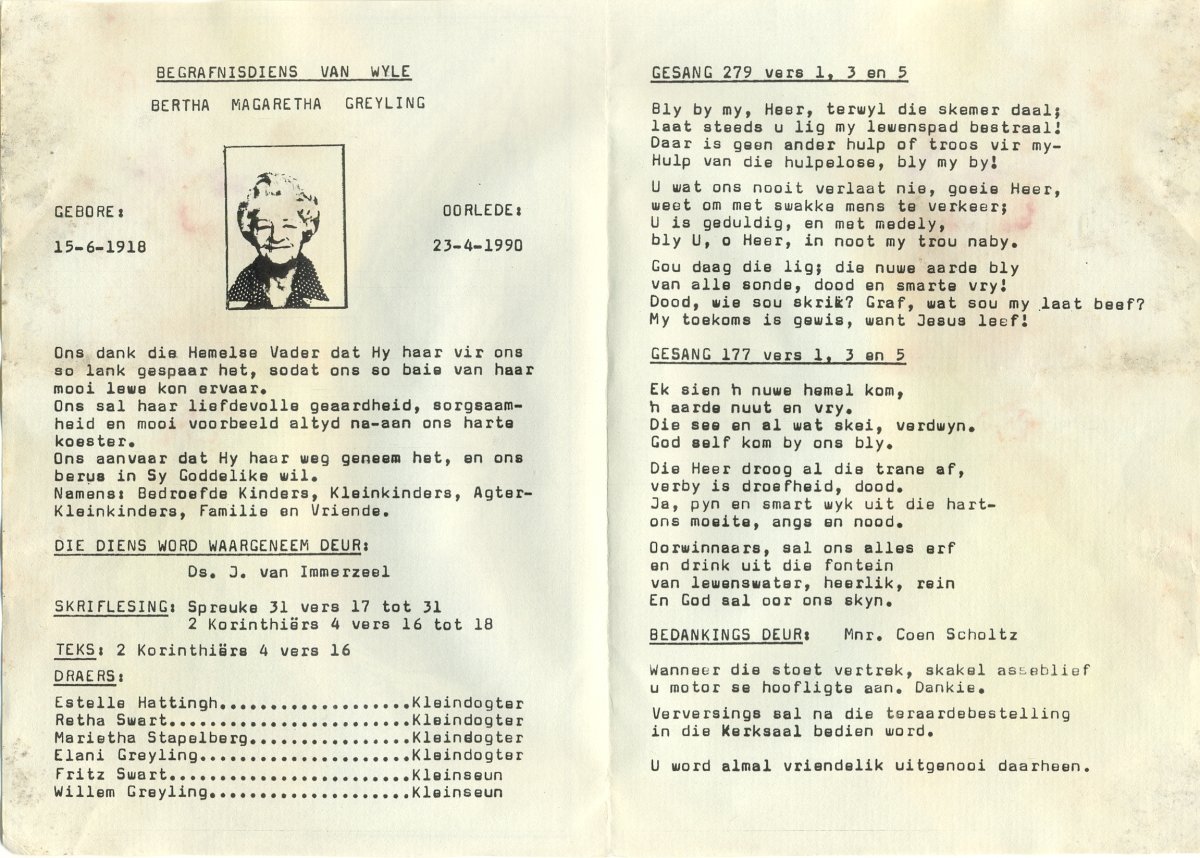 BEGRAFNISDIENS VAN WYLE
BERTHA MAGARETHA GREYLING
GEBORE:
OORLEDE:
15-6-1918
23-4-1990
Ons dank die Hemelse Vader dat Hy haar vir ons
so lank gespaar het, sodat ons so baie van haar
mooi lewe kon ervaar.
Ons sal haar liefdevolle geaardheid, sorgsaam-
heid en mooi voorbeeld altyd na-aan ons harte
koester.
Ons aanvaar dat Hy haar weg geneem het, en ons
berus in Sy Goddelike wil.
Namens: Bedroefde Kinders, Kleinkinders, Agter-
Kleinkinders, Familie en Vriende.
DIE DIENS WORD WAARGENEEM DEUR:
Ds. J. van Immerzeel
SKRIFLESING: Spreuke 31 vers 17 tot 31
2 Korinthiërs 4 vers 16 tot 18
TEKS: 2 Korinthiërs 4 vers 16
DRAERS:
Estelle Hattingh...................Kleindogter
Retha Swart........................Kleindogter
Marietha Stapelberg................Kleindogter
Elani Greyling.....................Kleindogter
Fritz Swart........................Kleinseun
Willem Greyling....................Kleinseun
GESANG 279 vers 1, 3 en 5
Bly by my, Heer, terwyl die skemer daal;
laat steeds u lig my lewenspad bestraal!
Daar is geen ander hulp of troos vir my-
Hulp van die hulpelose, bly my by!
U wat ons nooit verlaat nie, goeie Heer,
weet om met swakke mens te verkeer;
U is geduldig, en met medely,
bly U, o Heer, in noot my trou naby.
Gou daag die lig; die nuwe aarde bly
van alle sonde, dood en smarte vry!
Dood, wie sou skrik? Graf, wat sou my laat beef?
My toekoms is gewis, want Jesus leef!
GESANG 177 vers 1, 3 en 5
Ek sien 'n nuwe hemel kom,
'n aarde nuut en vry.
Die see en al wat skei, verdwyn.
God self kom by ons bly.
Die Heer droog al die trane af,
verby is droefheid, dood.
Ja, pyn en smart wyk uit die hart-
ons moeite, angs en nood.
Oorwinnaars, sal ons alles erf
en drink uit die fontein
van lewenswater, heerlik, rein
En God sal oor ons skyn.
BEDANKINGS DEUR: Mnr. Coen Scholtz
Wanneer die stoet vertrek, skakel asseblief
u motor se hoofligte aan. Dankie.
Verversings sal na die teraardebestelling
in die Kerksaal bedien word.
U word almal vriendelik uitgenooi daarheen.